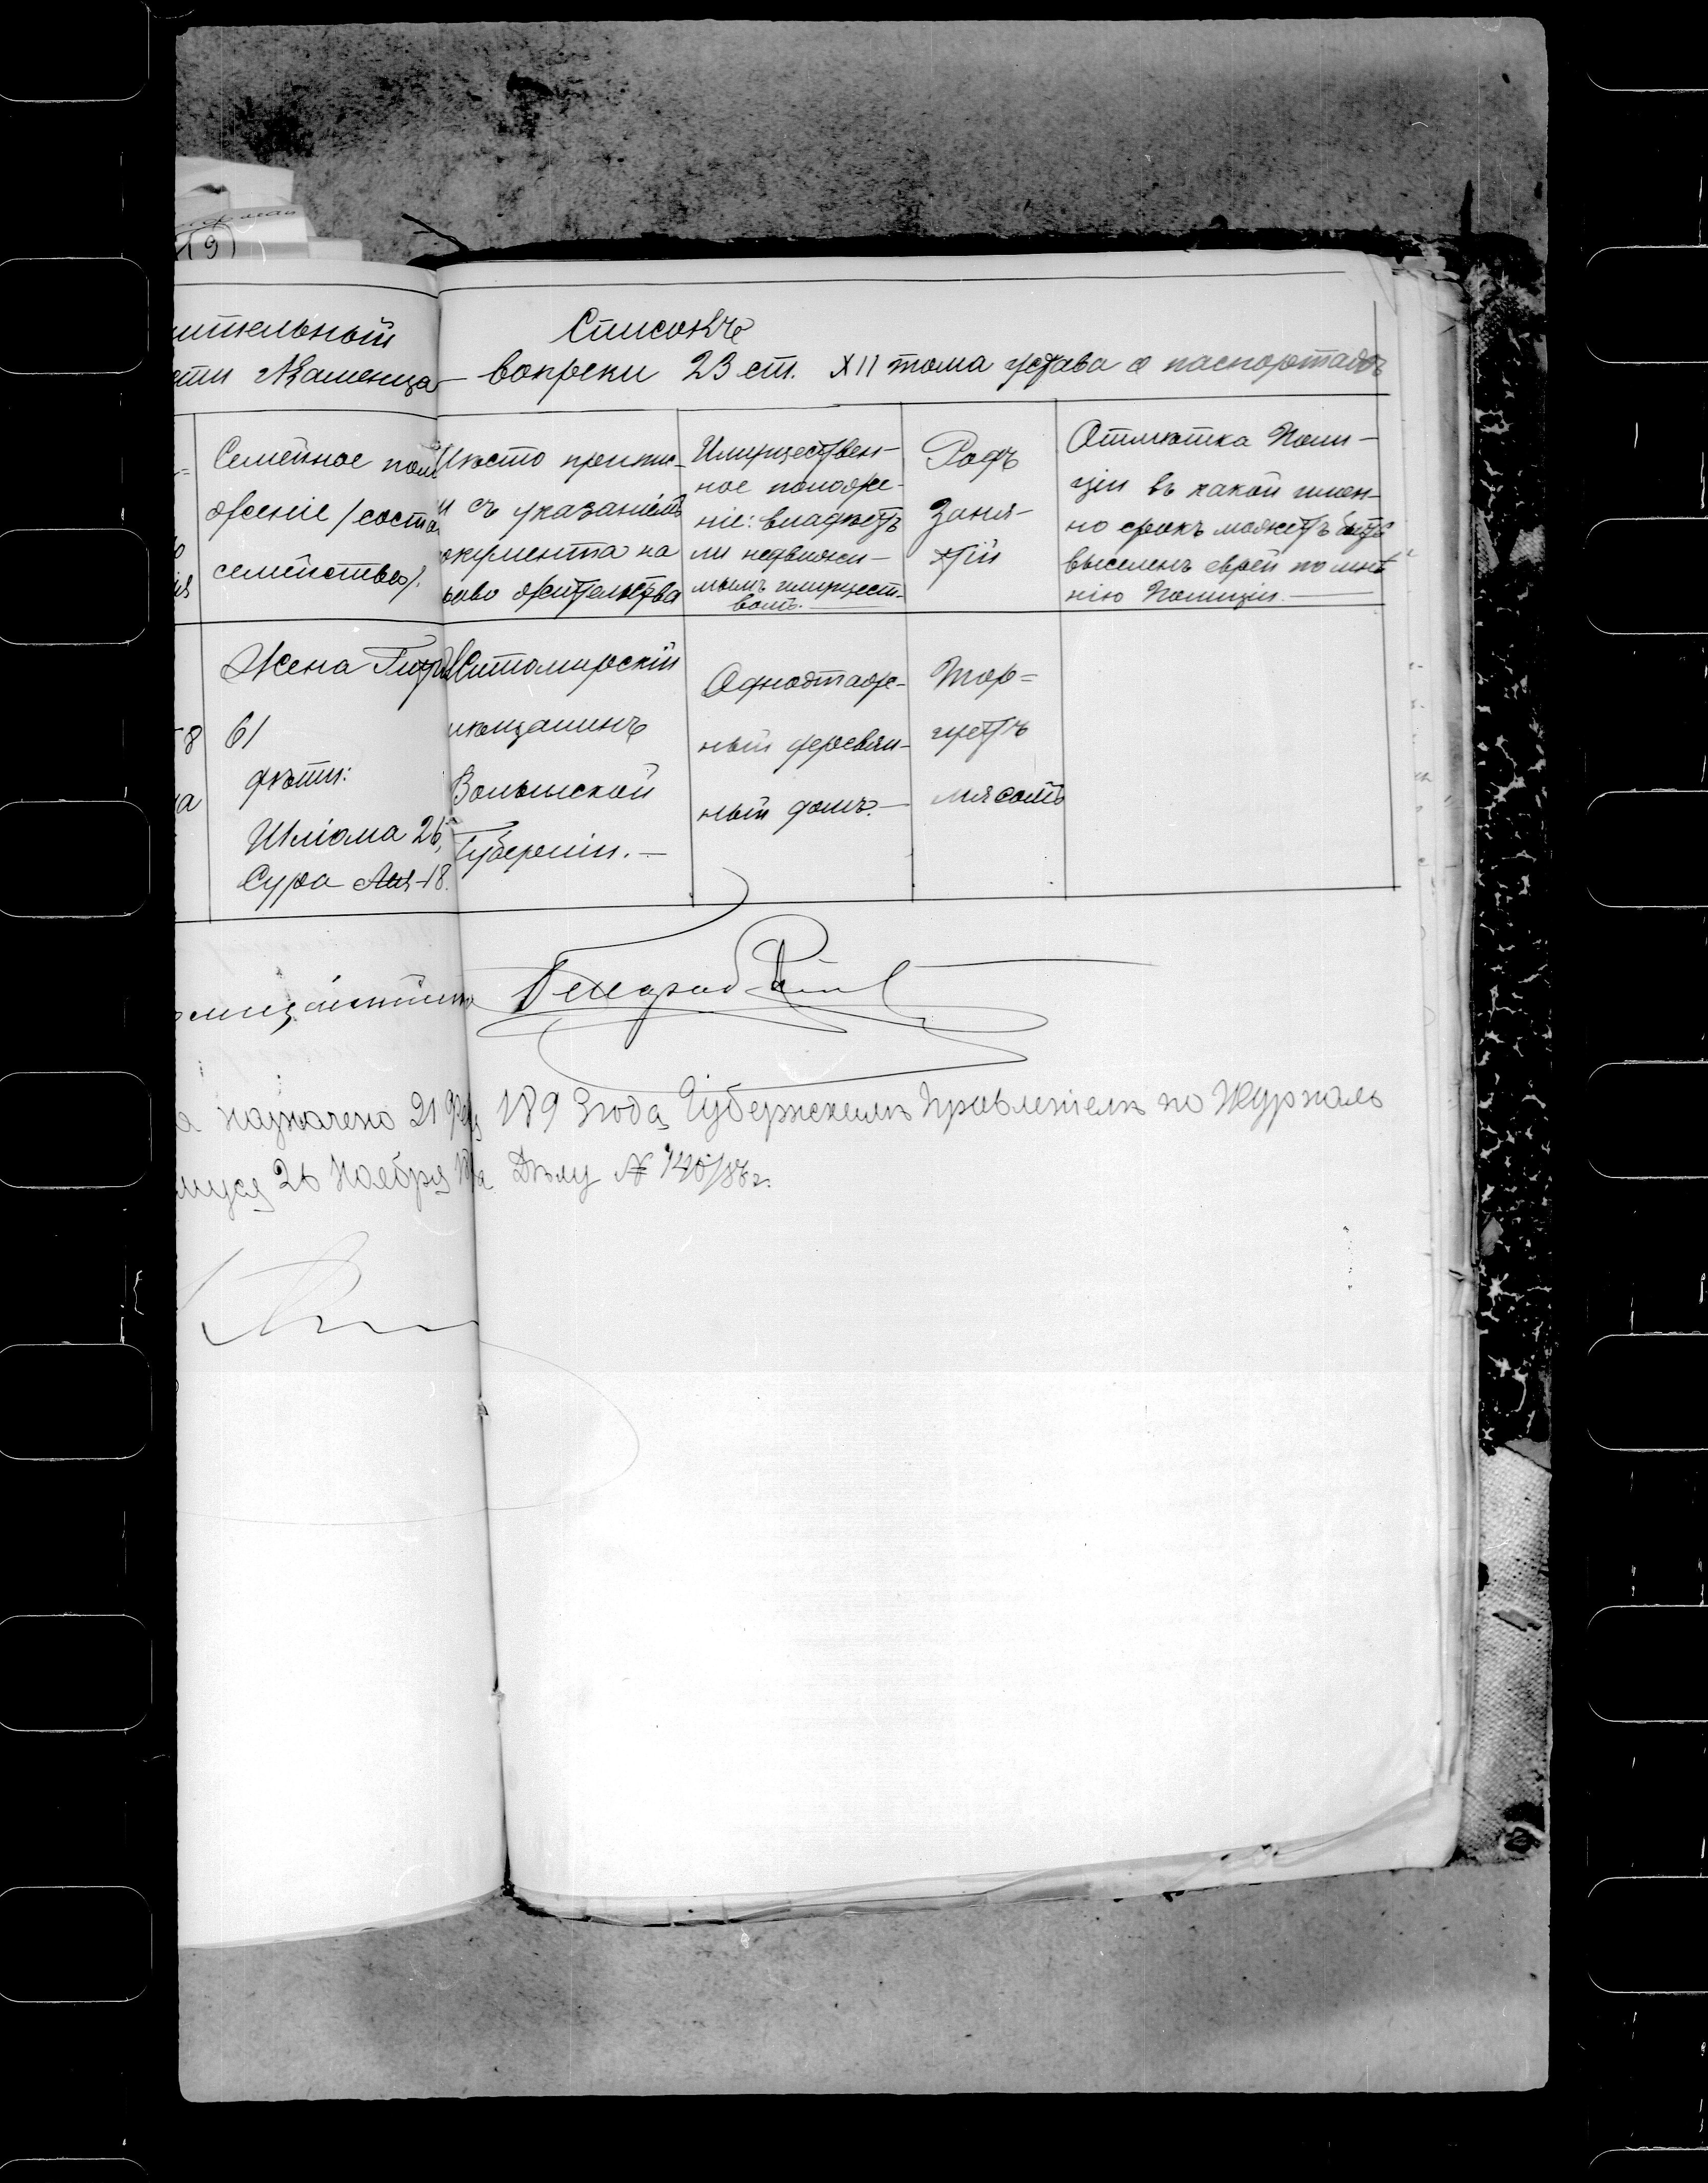 (9)
ительный Списокъ
сти Каменца - вопреки 23 ст. XII тома устава о паспортахъ
Семейное поло
жение /соста
семейства/.
Мѣсто припис-
и съ указаніемъ
окумента на
раво жительства
Имуществен-
ное положе-
ніе: владѣетъ
ли недвижи-
мымъ имущест-
вомъ.
Родъ
Заня-
тій
Отмѣтка Поли-
ціи въ какой имен-
но срокъ можетъ быть
выселенъ еврей по мнѣ
нію Полиціи.
8
а
Жена
61
дѣти:
Шліома 26,
Сура Лія-18.
Житомирскій
мѣщанинъ
Волынской
Губерніи.-
Одноэтаж-
ный деревян-
ный домъ.-
Тор=
гуетъ
мясомъ
назначено 21 189 3 года Губернскимъ Правленіемъ по Журналъ
26 Ноября Дѣлу №